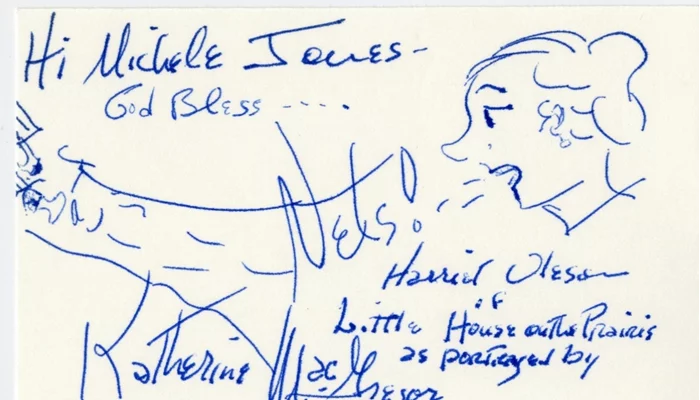 Hi Michele Jones-
God Bless ----.
Nels!
Harriet Oleson
of
Little House on the Prairie
as portrayed by
Katherine MacGregor